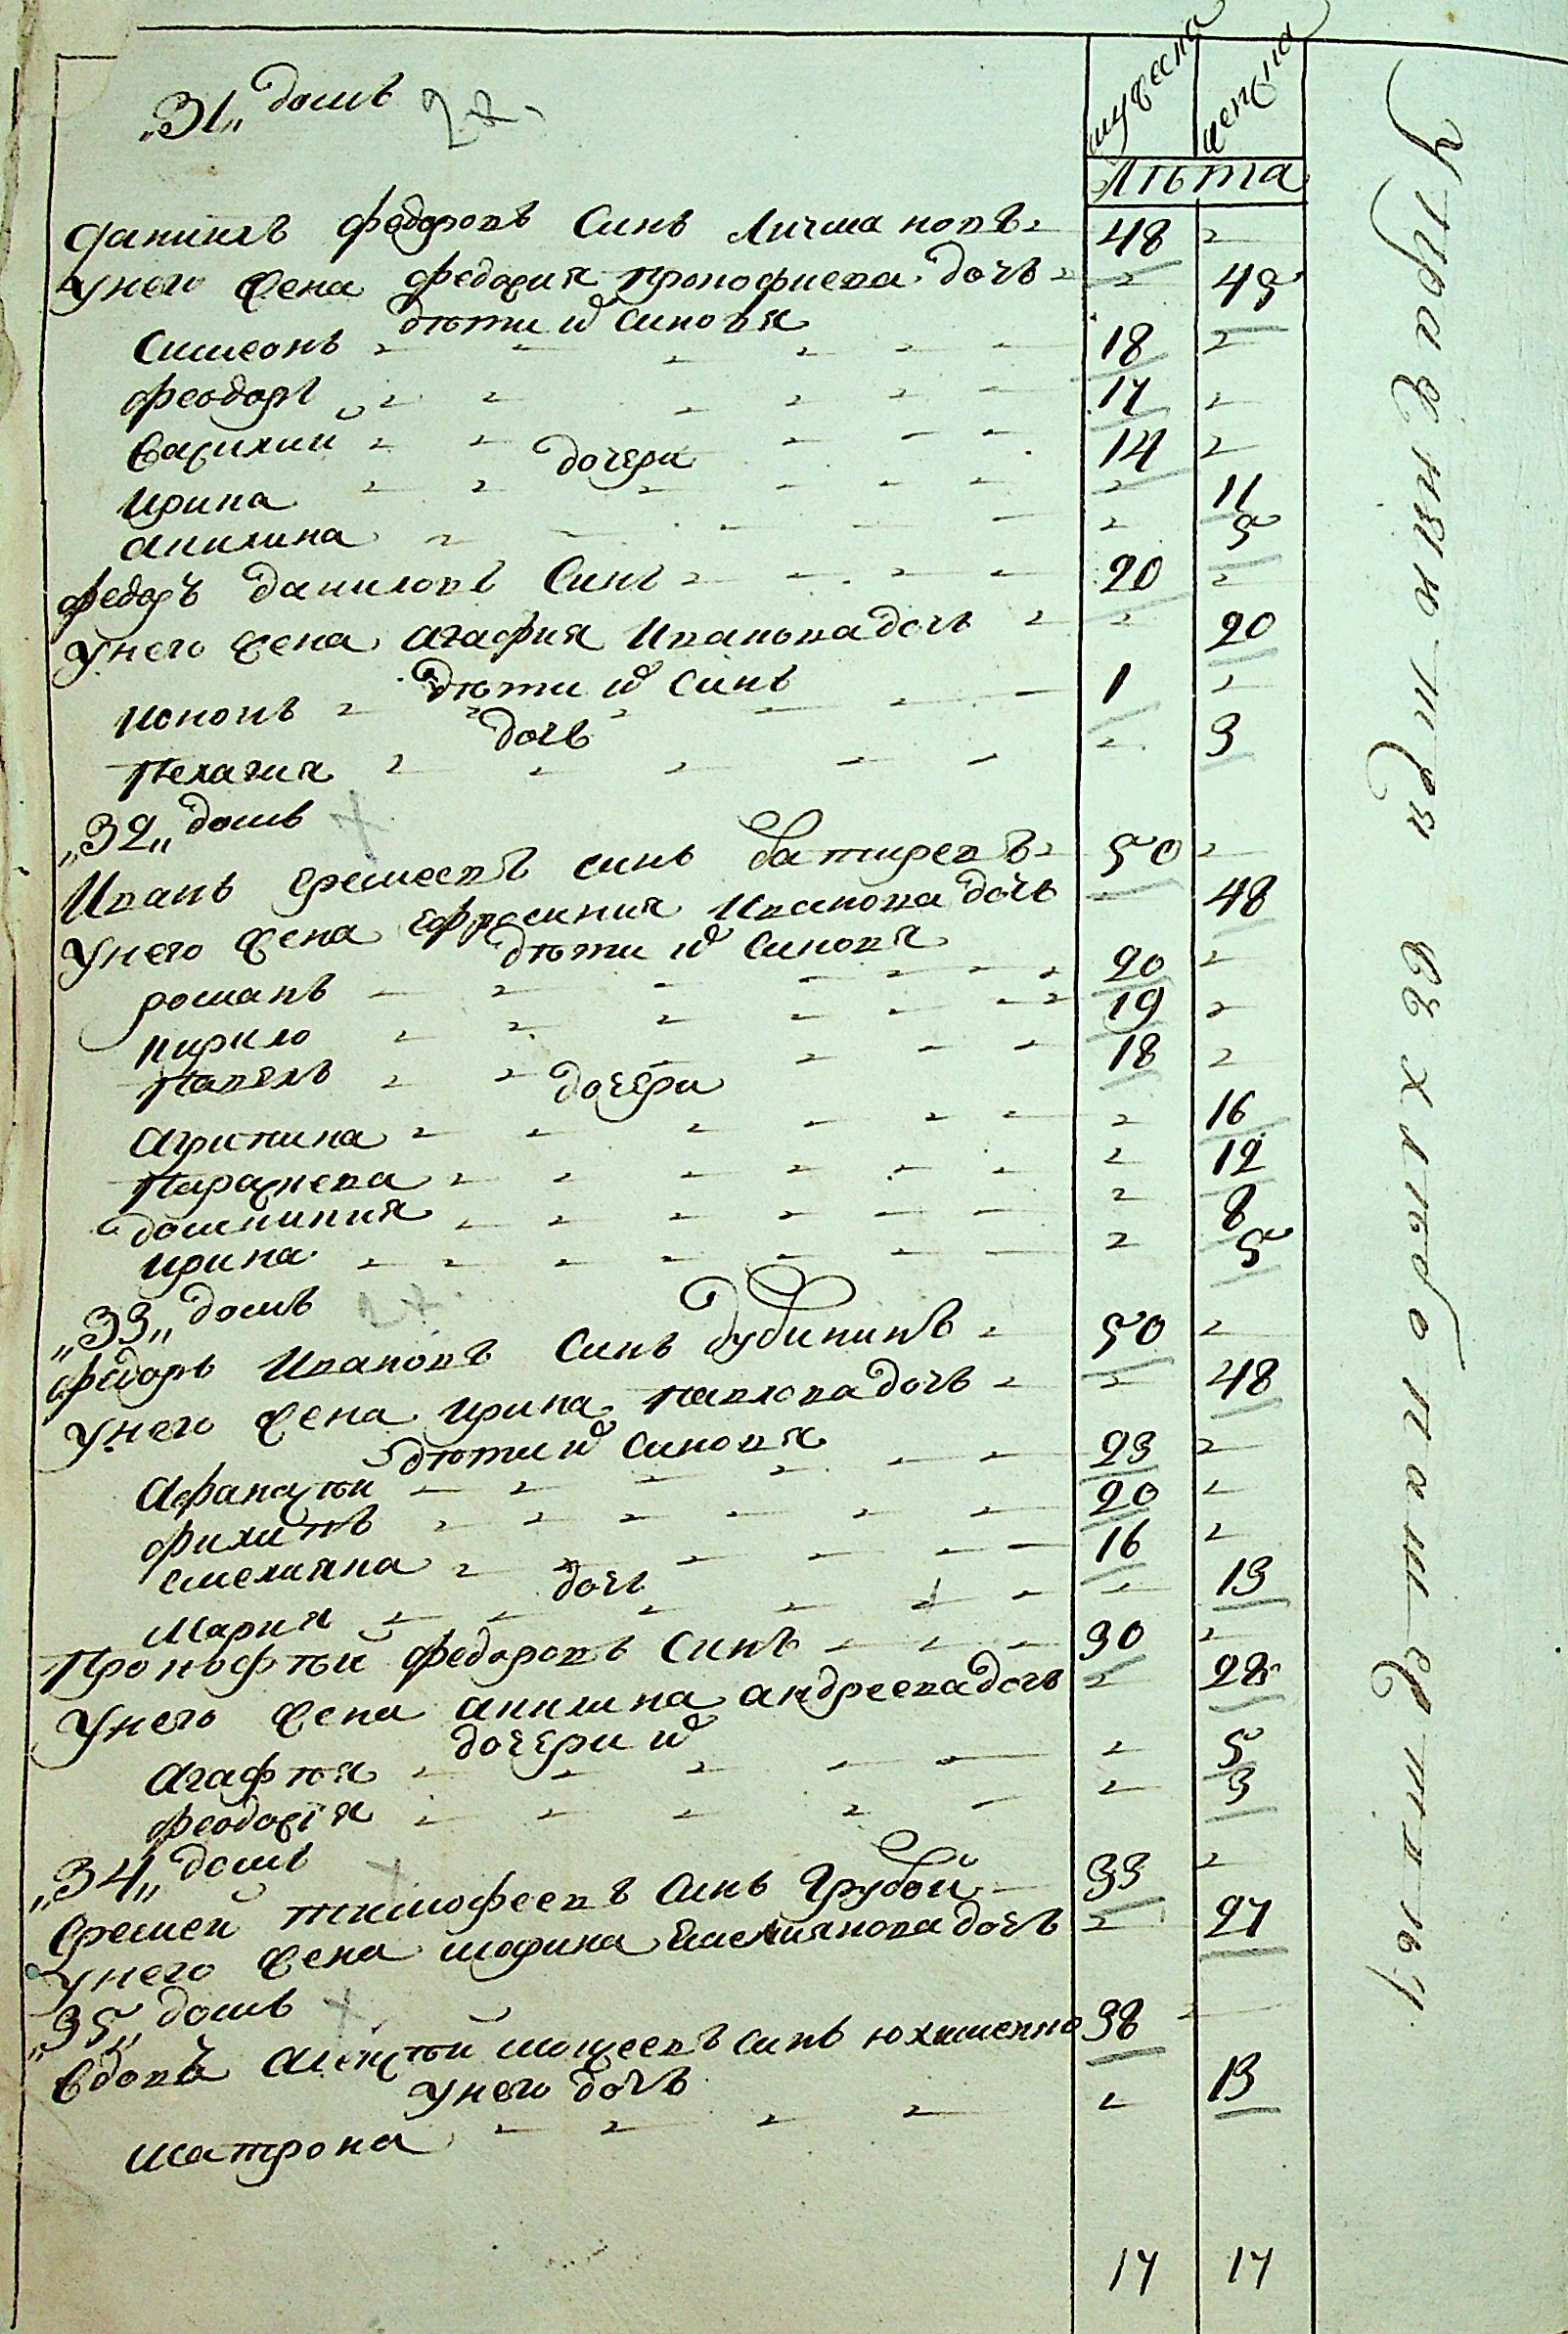 мужеска женска
Лѣта
„31„ домъ
Данилъ Федоровъ Синъ Личма новъ 48
Унего жена Федосия Прокофиева дочъ 45
дѣти их синовя
Симеонъ 18
Феодоръ 17
Василий 14
дочери
Ирина 11
Акилина 5
Федоръ Даниловъ Синъ 20
Унего жена Агафия Ивановна дочъ 20
дѣти их Синъ
Кононъ 1
дочъ
Пелагия 3
„32„ домъ
Иванъ Еремеевъ синъ Батиревъ 50
Унего жена Ефросиния Иванова дочъ 48
дѣти их синовя
Романъ 20
Кирило 19
Павелъ 18
дочери
Агрипина 16
Параскева 12
Домникия 8
Ирина 5
„33„ домъ
Федоръ Ивановъ Синъ Дубининъ 50
Унего жена Ирина Павлова дочъ 48
дѣти их синовя
Афанасѣй 23
Филипъ 20
Емелияна 16
дочъ
Мария 13
Прокофѣй Федоровъ Синъ 30
Унего жена Акилина Андреева дочъ 28
дочери их
Агафѣя 5
Феодосія 3
„34„ домъ
Еремей Тимофеевъ Синъ Грубой 33
Унего жена Марина Емелиянова дочъ 27
„35„ домъ
Вдовъ Алексѣй Мосеевъ синъ Юхименко 38
Унего дочъ
Матрона 13
17 17